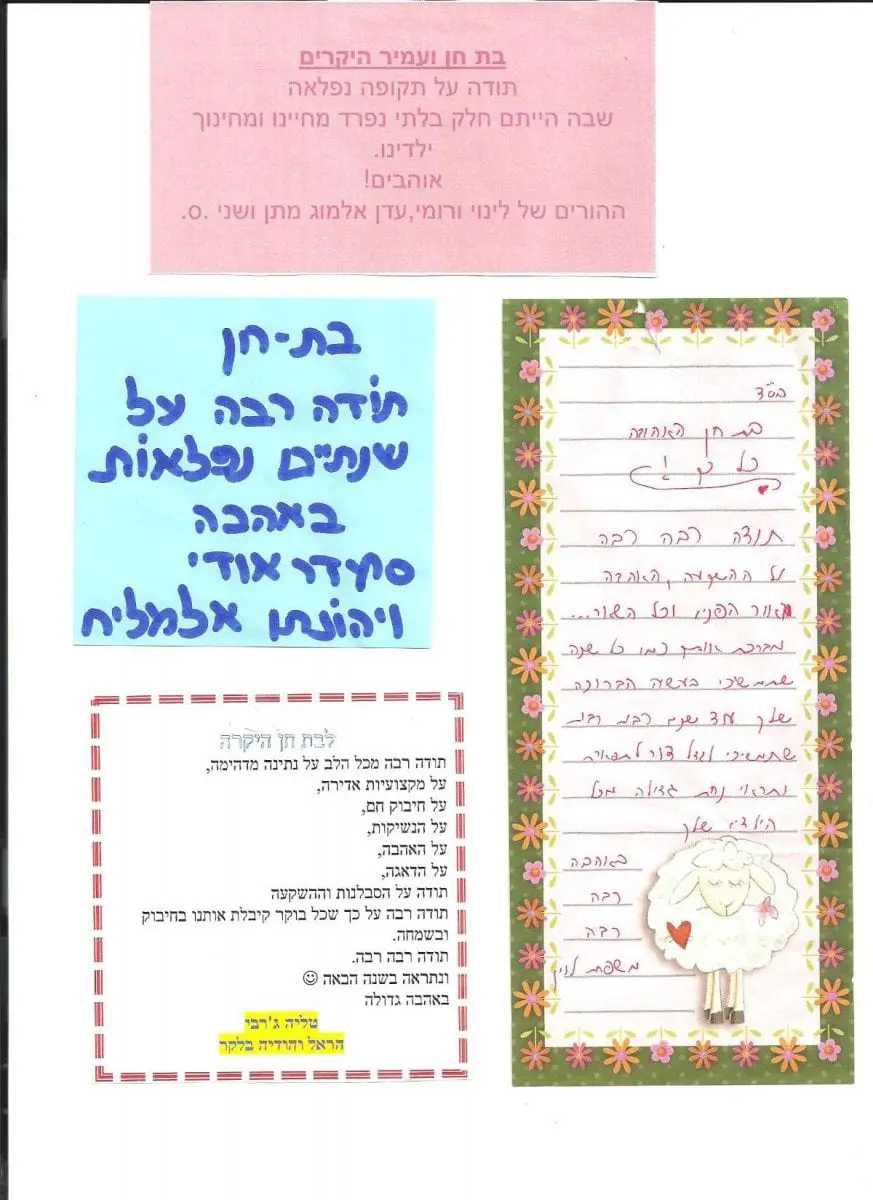 בת חן ועמיר היקרים
תודה על תקופה נפלאה
שבה הייתם חלק בלתי נפרד מחיינו ומחינוך
ילדינו.
אוהבים!
ההורים של לינוי ורומי,עדן אלמוג מתן ושני .ס.
בת-חן
תודה רבה על
שנתיים נפלאות
באהבה
סתיו אודי
ויהונתן אלמליח
בס"ד
בת חן האהובה
תודה רבה רבה
על ההשקעה, האהבה
מאור הפנים וכל השאר...
מברכת אותך כמו כל שנה
שתמשיכי בעשיה הברוכה
שלך עוד שנים רבות רבות
שתמשיכי לגדל דור לתפארת
ותראי נחת גדולה מכל
הילדים שלך
באהבה
רבה
רבה
משפחת לוין
לבת חן היקרה
תודה רבה מכל הלב על נתינה מדהימה,
על מקצועיות אדירה,
על חיבוק חם,
על הנשיקות,
על האהבה,
על הדאגה,
תודה על הסבלנות וההשקעה
תודה רבה על כך שכל בוקר קיבלת אותנו בחיבוק
ובשמחה.
תודה רבה רבה.
ונתראה בשנה הבאה ☺
באהבה גדולה
טליה ג'רבי
הראל והודיה בלקר